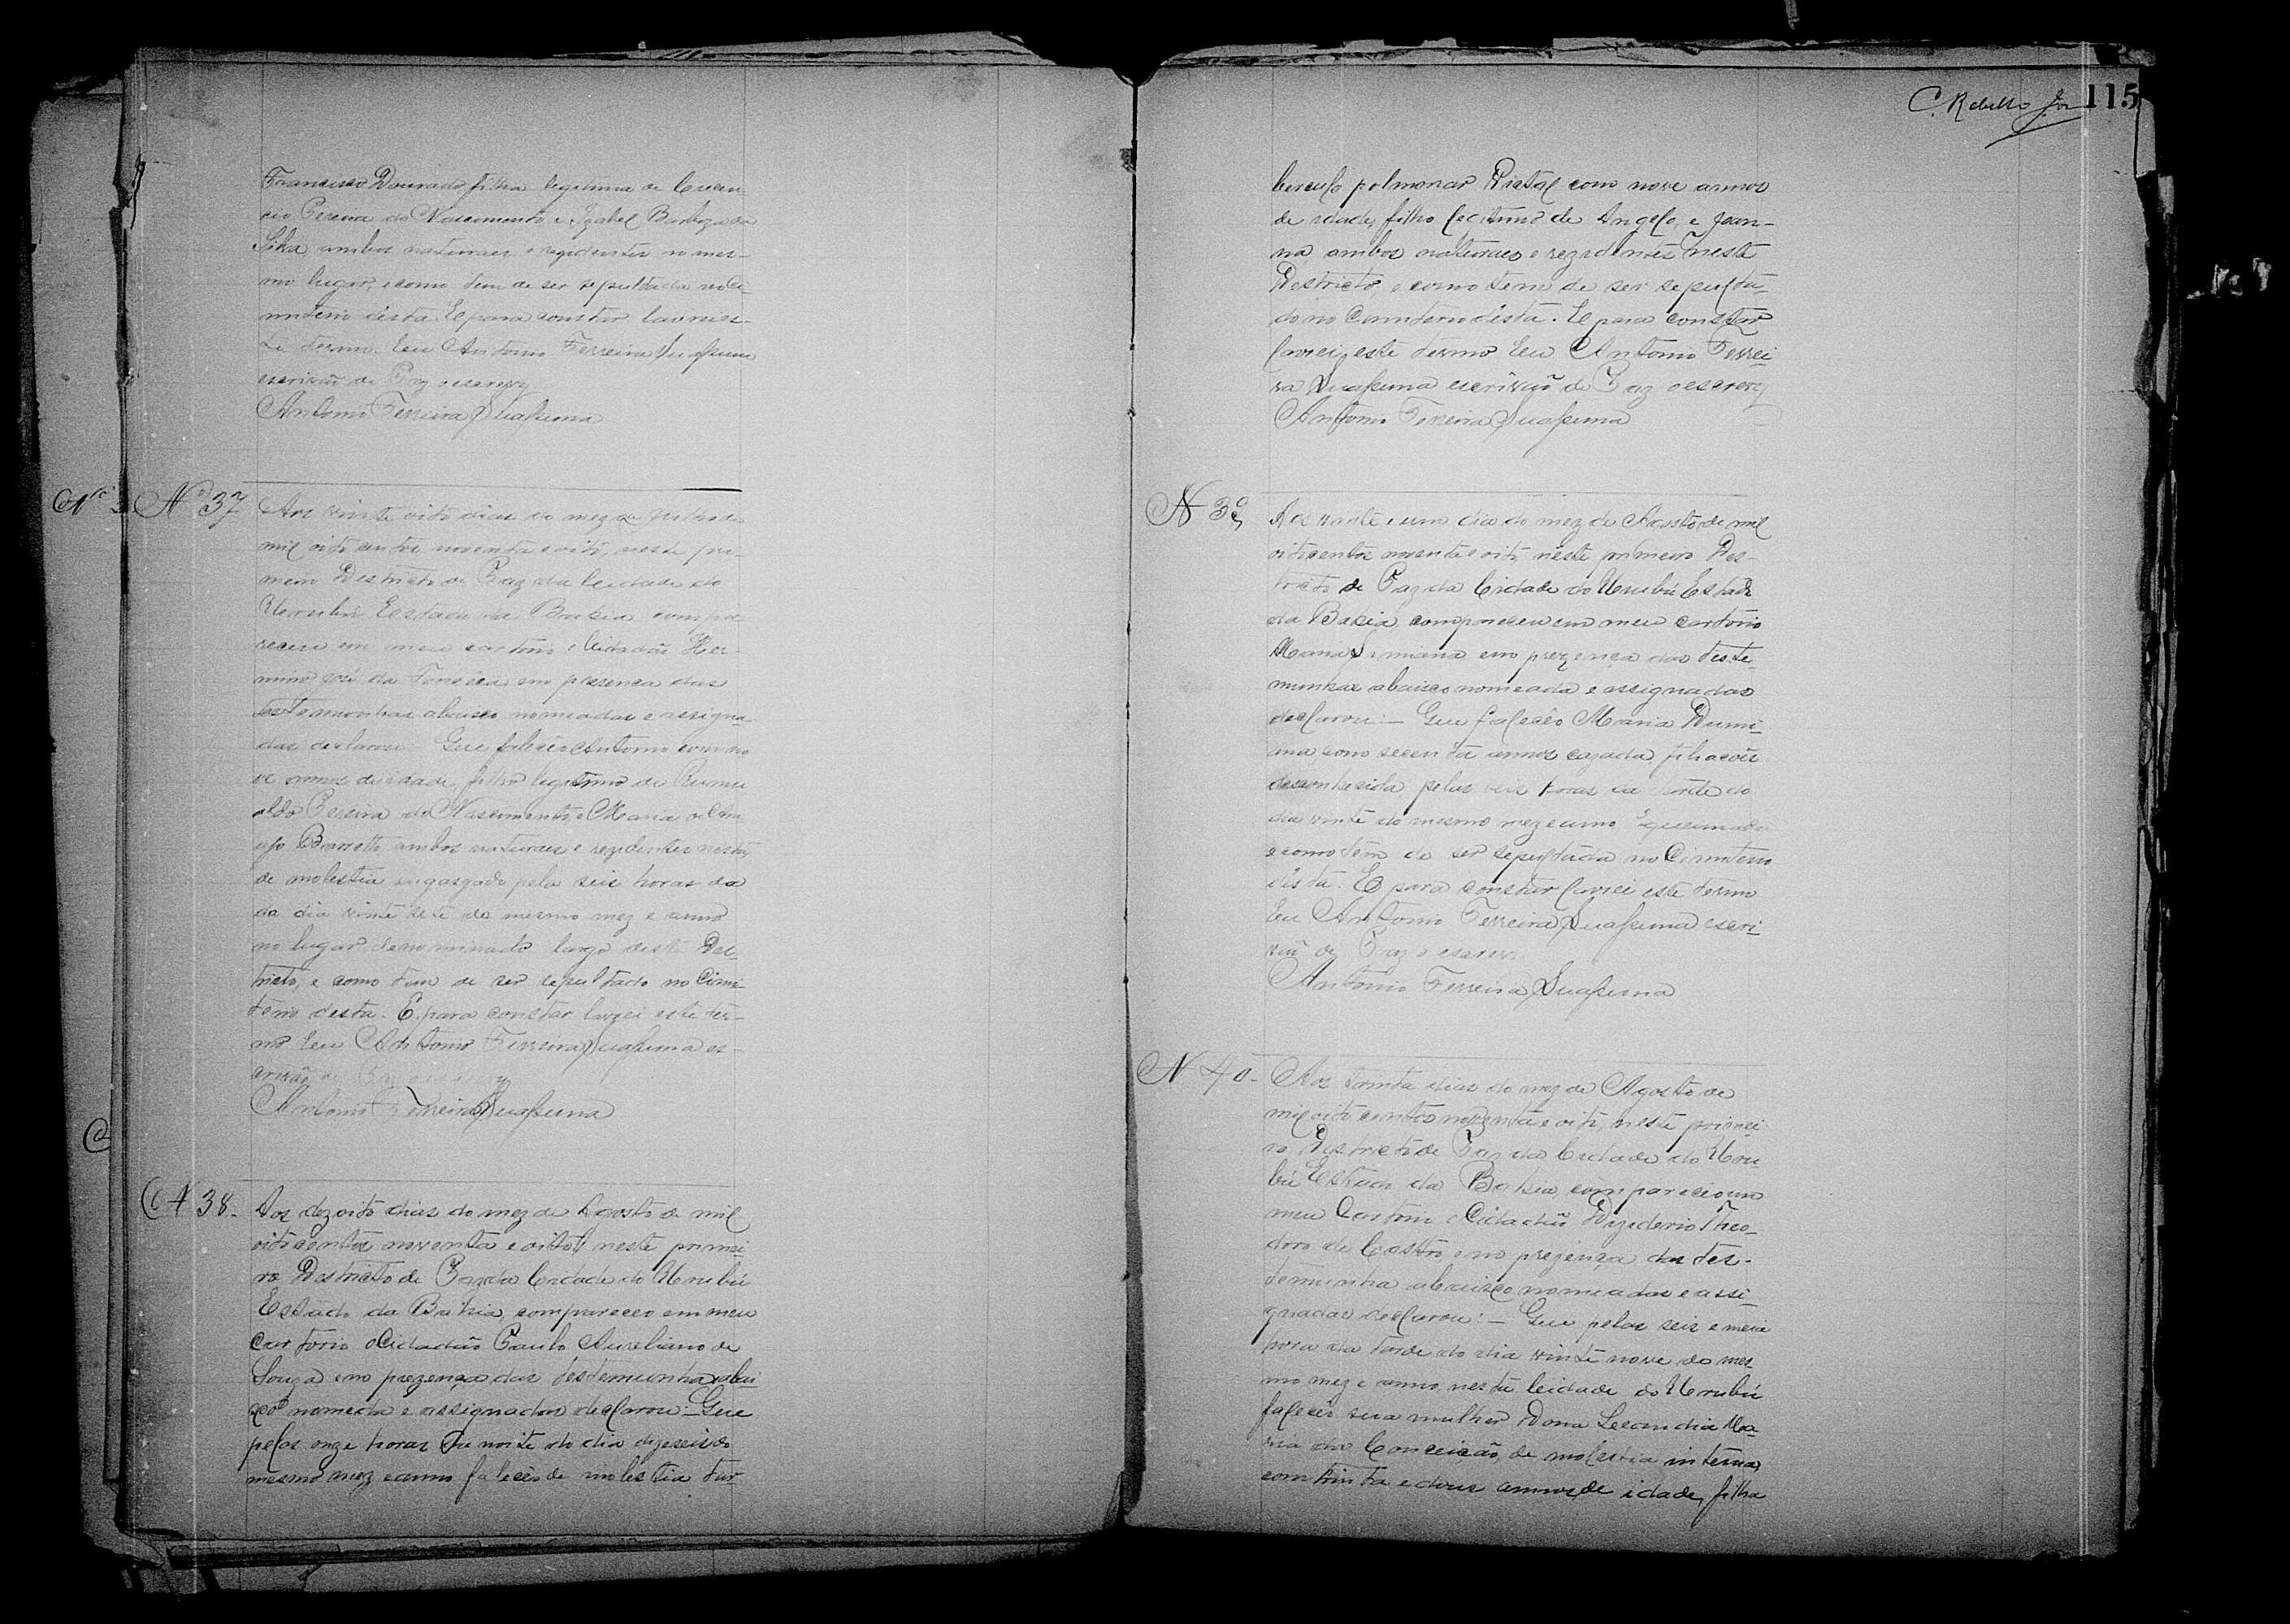 Francisco Dourado, filha legitima de Crecen-
cio Pereira do Nascimento e Izabel Barboza da
Silva ambos naturaes e rezidentes no mes-
mo lugar, e como tem de ser sepultada no Ci-
miterio desta. E para constar lavrei es-
te termo. Eu Antonio Ferreira Suassuna
escrivão de Paz o escrevy
Antonio Ferreira Suassuna
Nº 37
Aos vinte oito dias do mez de Julho de
mil oito centos noventa e oito, neste pri-
meiro Destricto de Paz da Cidade do
Urubú Estado da Bahia compa
receu em meu cartorio o Cidadão Her-
mino José da Fonseca em presenca das
testemunhas abaixo nomeadas e assigna
das declarou: Que faleceo Antonio com no
ve annos de idade, filho legitimo de Rumu
aldo Pereira do Nascimento, e Maria
Barretto ambos naturaes e rezidentes nesta,
de molestia engasgado pela seis horas da
da dia vinte sete do mesmo mez e anno
no lugar denominado larga deste Des-
tricto, e como tem de ser sepultado no Cimi-
terio desta. E para constar lavrei este ter-
mo Eu Antonio Ferreira Suassuna es-
crivão de Paz o escrevy
Antonio Ferreira Suassuna
N 38.
Aos dezoito dias do mez de Agosto de mil
oito centos noventa e oito, neste primei-
ro Destricto de Paz da Cidade do Urubú
Estado da Bahia, compareceo em meu
Cartorio o Cidadão Paulo Aureliano de
Souza e no prezença das testemunha abai-
xo nomeada e assignadas declarou:- Que
pelas onze horas da noite do dia dezeseis do
mesmo mez e anno faleceo de molestia tur-
C. Rabello Jor 115
berculo polmonar Piatal com nove annos
de idade, filho legitimo de Angelo, e Joan-
na ambos naturaes e rezidentes neste
Destricto e como tem de ser sepulta-
do no Cimiterio desta. E para constar
lavrei este termo Eu Antonio Ferrei-
ra Suassuna escrivão de Paz o escrevy
Antonio Ferreira Suassuna
N 39
Aos vinte e um dia do mez de Agosto de mil
oitocentos noventa e oito, neste primeiro Des-
tricto de Paz da Cidade do Urubú Estado
da Bahia, compareceu em meu cartorio
Maria em prezença das teste-
munhas abaixo nomeada e assignadas
declarou:- Que faleceo Maria Dumi-
ana, com secenta annos cazada, filhacões
desconhesida, pelas seis horas da tarde do
dia vinte do mesmo mez e anno queimada
e como tem de ser sepultada no Cimiterio
desta. E para constar lavrei este termo
Eu Antonio Ferreira Suassuna escri-
vão de Paz o escrevi
Antonio Ferreira Suassuna
N 40-
Aos trinta dias do mez de Agosto de
mil oito centos noventa e oito, neste primei-
ro Destricto de Paz da Cidade do Uru-
bú Estado da Bahia compareceo em
meu Cartorio o Cidadão Dezederio Theo-
doro de Castro e no prezença das tes-
temunha abaixo nomeadas e assi-
gnadas declarou:- Que pelas seis e meia
hora da tarde do dia vinte nove do mes
mo mez e anno, nesta Cidade do Urubú
faleceo sua mulher Dona Leocandia Ma-
ria da Conceicão, de molestia interna,
com trinta e dous annos de idade, filha